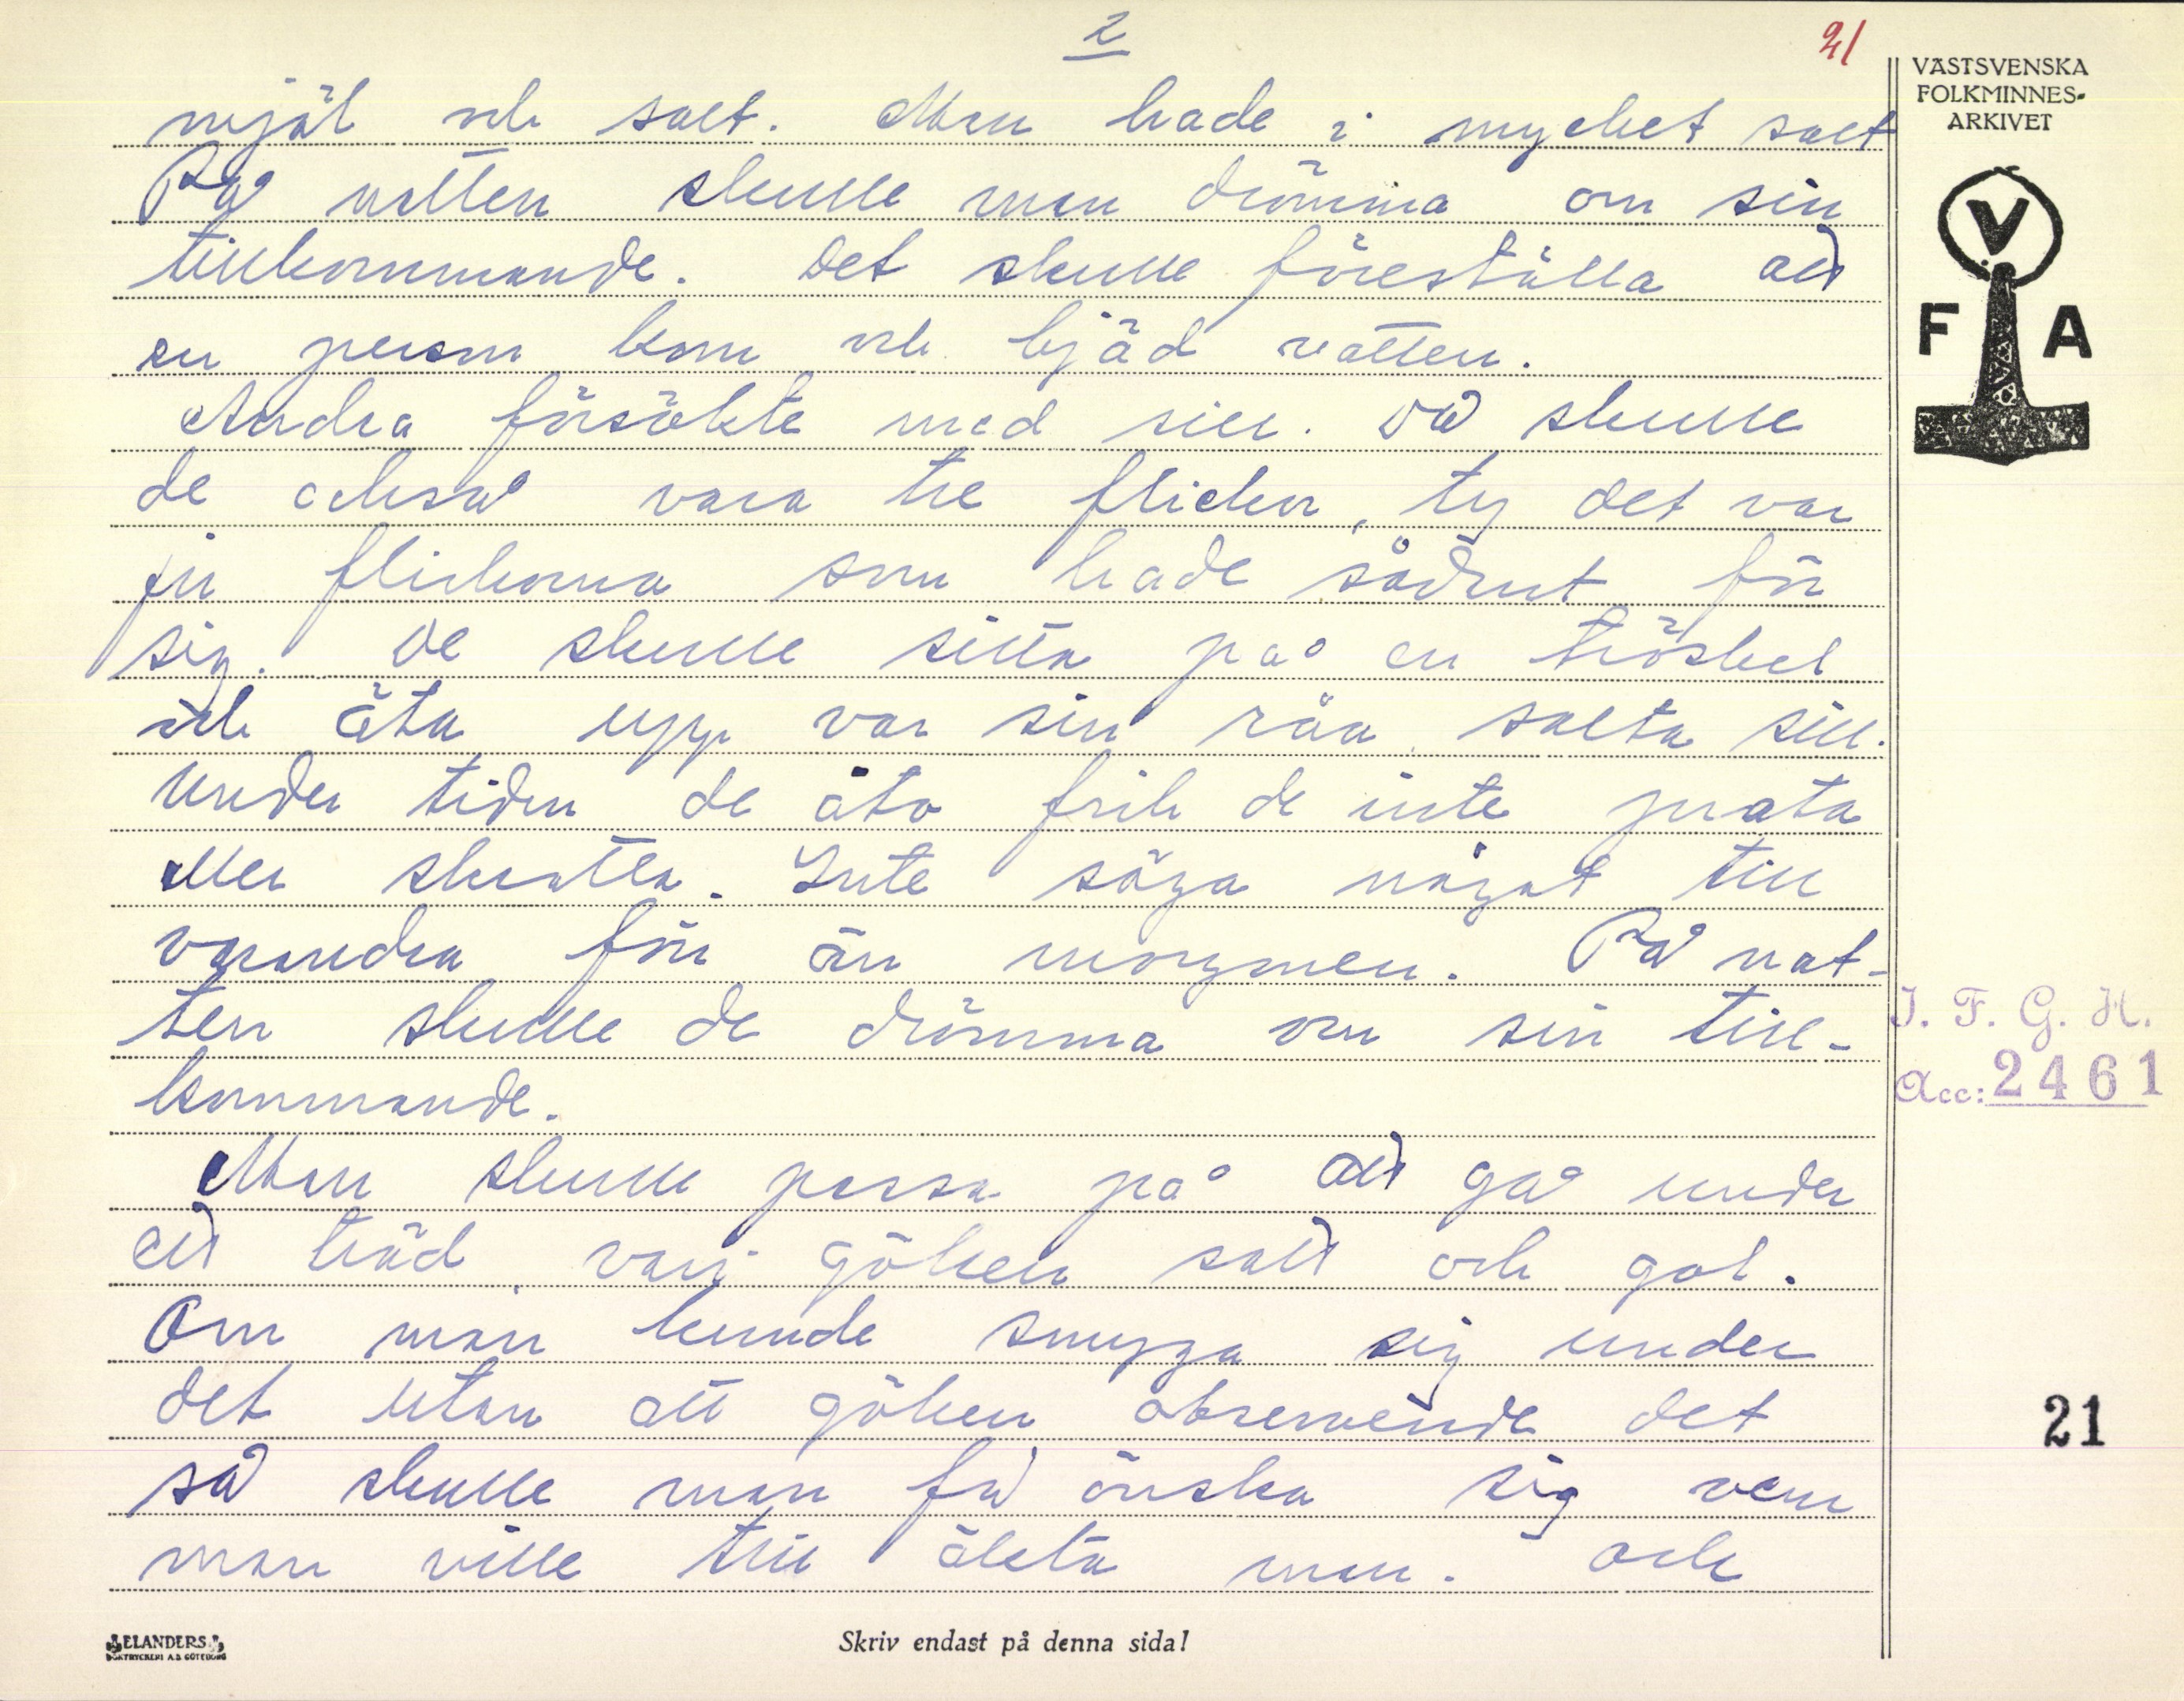 2
21
VÄSTSVENSKA
FOLKMINNES-
ARKIVET
V
F A
mjöl och salt. Man hade i mycket salt
På natten skulle man drömma om sin
tillkommande. Det skulle föreställa att
en person kom och bjöd vatten.
Andra försökte med sill. Då skulle
de också vara tre flickor, ty det var
ju flickorna som hade sådant för
sig. De skulle sitta på en tröskel
och äta upp var sin råa, salta sill.
Under tiden de åto fick de inte prata
eller skratta. Inte säga något till
varandra förr än morgonen. På nat-
ten skulle de drömma om sin till-
kommande.
Man skulle passa på att gå under
ett träd, vari göken satt och gol.
Om man kunde smyga sig under
det utan att göken observerade det
så skulle man få önska sig vem
man ville till äkta man. och
I. F. G. H.
Acc: 2461
21
ELANDERS
BOKTRYCKERI A.B. GÖTEBORG
Skriv endast på denna sida!